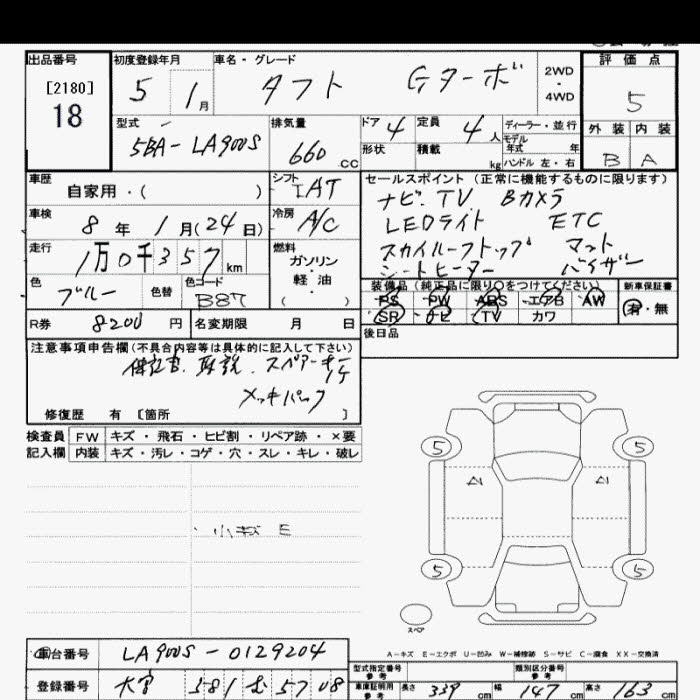 出品番号 初度登録年月 車名・グレード 評価点
[2180]
18
5 1月 タフト Gターボ 2WD・4WD 5
型式 排気量 ドア 4 定員 4人 ディーラー・並行 外装 内装
5BA-LA900S 660cc 形状 積載 kg モデル年式 年 B A
ハンドル 左・右
車歴 シフト セールスポイント (正常に機能するものに限ります)
自家用・( ) IAT ナビ.TV Bカメラ
車検 8年 1月(24日) 冷房 A/C LEDライト ETC
走行 1万0千357km 燃料 スカイルーフトップ マット
ガソリン・軽油・( ) シートヒーター バイザー
色 ブルー 色替 色コード B87 装備品(純正品に限り〇をつけてください) 新車保証書
PS PW ABS エアB AW 有・無
SR ナビ TV カワ
R券 8200円 名変期限 月 日 後日品
注意事項申告欄(不具合内容等は具体的に記入して下さい)
保証書. 取説. スペアーキー
1ケ
メッキパック
修復歴 有 [箇所 ]
検査員 FW キズ・飛石・ヒビ割・リペア跡・×要
記入欄 内装 キズ・汚レ・コゲ・穴・スレ・キレ・破レ
5 5
A1 A1
小キズ E
5 5
スペア
A-キズ E-エクボ U-凹み W-補修跡 S-サビ C-腐食 XX-交換済
車台番号 LA900S-0129204
型式指定番号 参考 類別区分番号 参考
登録番号 大宮 581 5708
車庫証明用 参考 長さ 339cm 幅 147cm 高さ 163cm